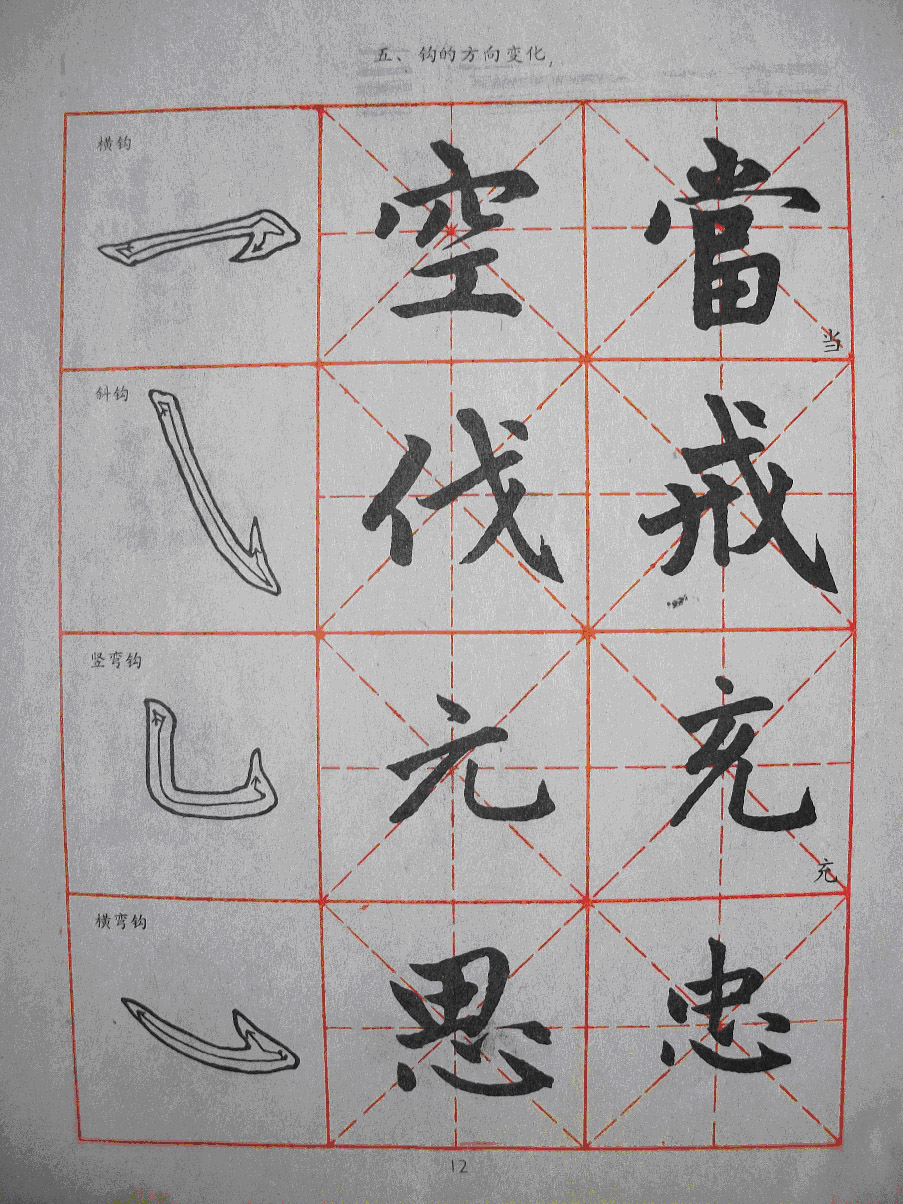 五、钩的方向变化
横钩
空 當
当
斜钩
伐 戒
竖弯钩
元 充
充
横弯钩
思 忠
12